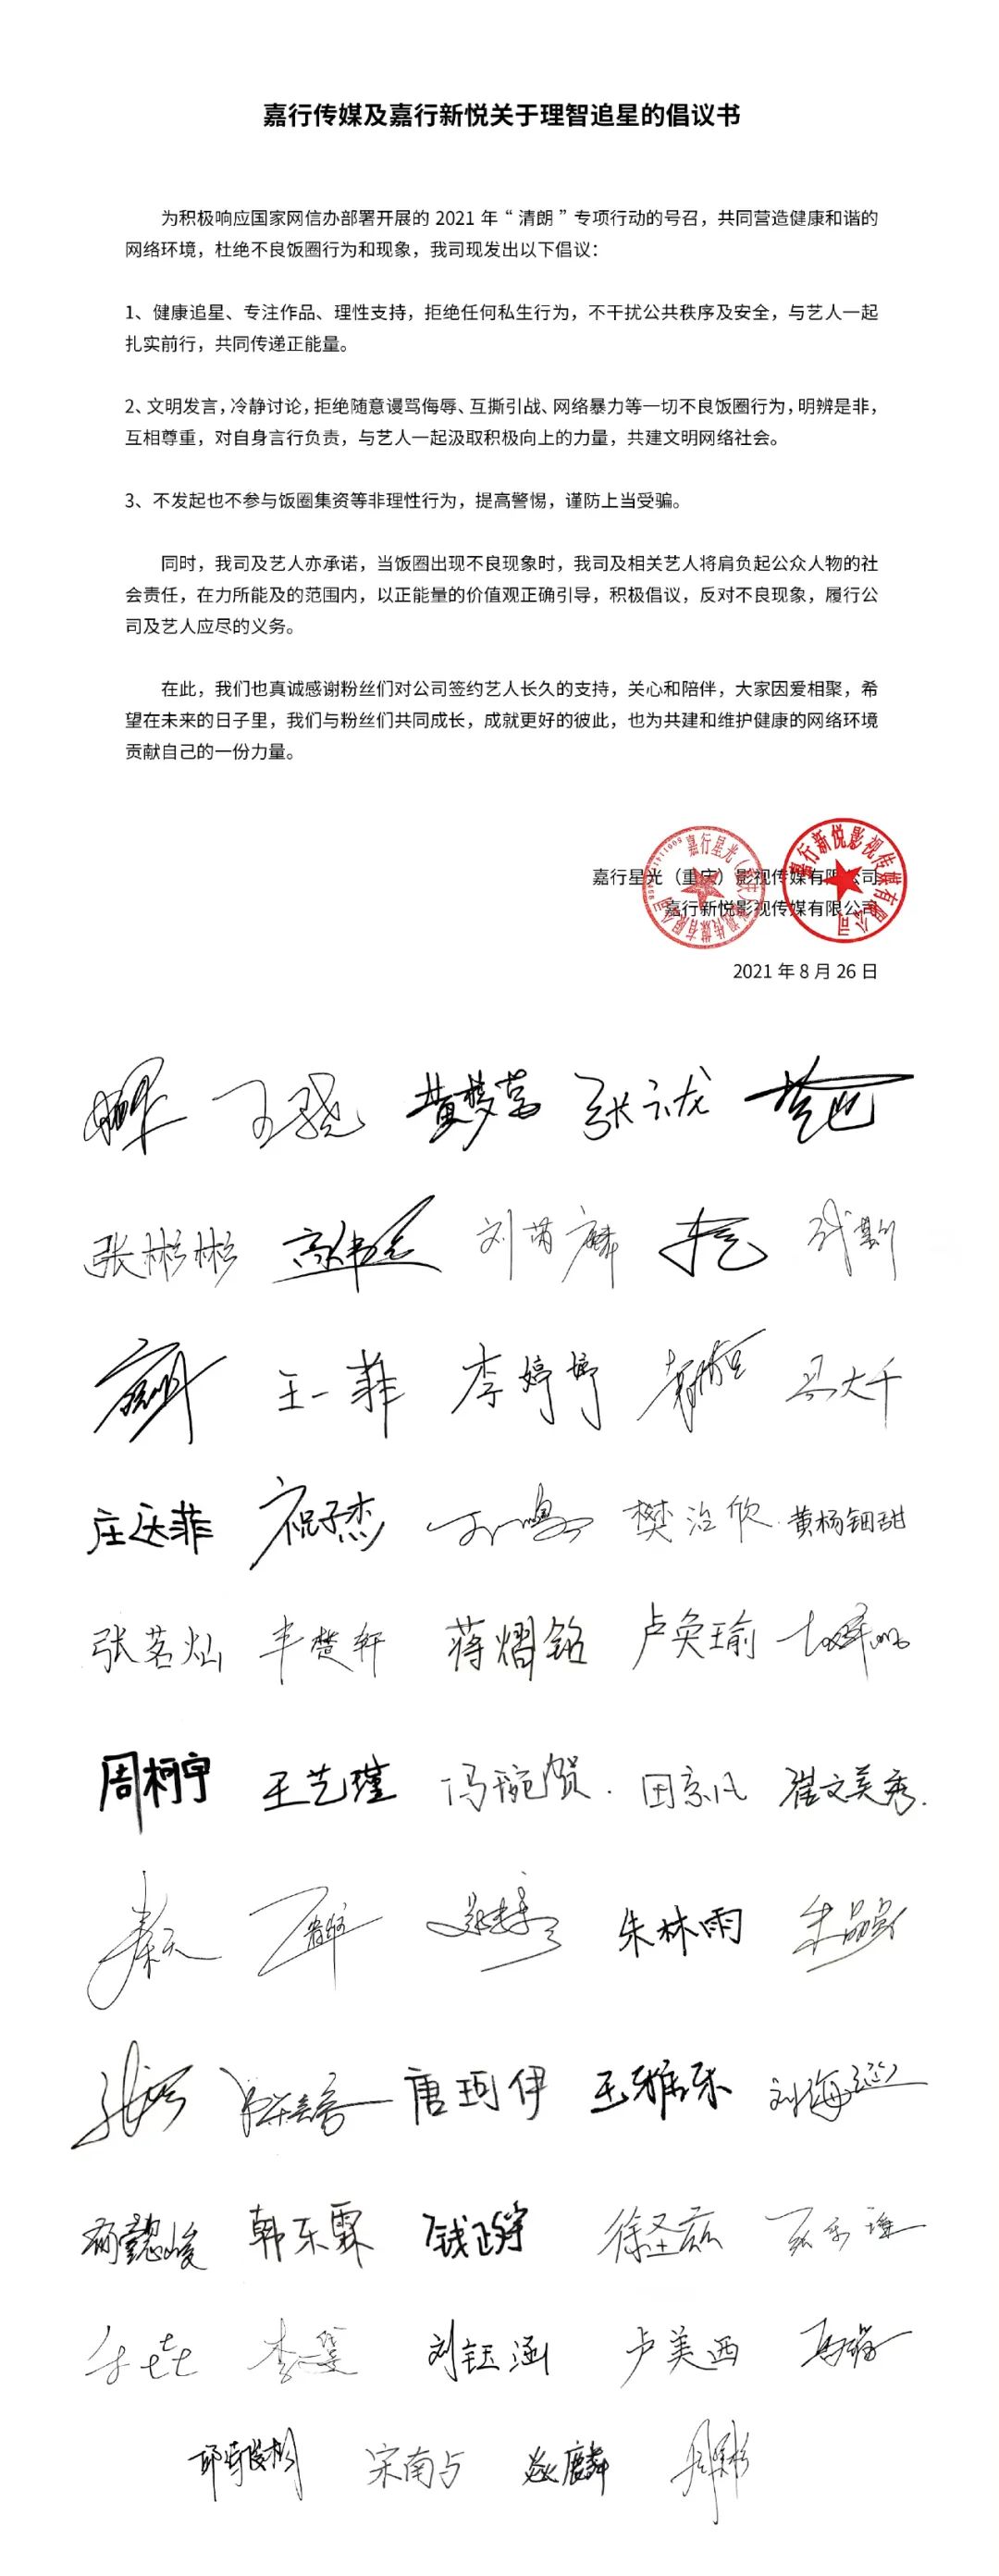 嘉行传媒及嘉行新悦关于理智追星的倡议书
为积极响应国家网信办部署开展的 2021 年“清朗”专项行动的号召，共同营造健康和谐的
网络环境，杜绝不良饭圈行为和现象，我司现发出以下倡议：
1、健康追星、专注作品、理性支持，拒绝任何私生行为，不干扰公共秩序及安全，与艺人一起
扎实前行，共同传递正能量。
2、文明发言，冷静讨论，拒绝随意谩骂侮辱、互撕引战、网络暴力等一切不良饭圈行为，明辨是非，
互相尊重，对自身言行负责，与艺人一起汲取积极向上的力量，共建文明网络社会。
3、不发起也不参与饭圈集资等非理性行为，提高警惕，谨防上当受骗。
同时，我司及艺人亦承诺，当饭圈出现不良现象时，我司及相关艺人将肩负起公众人物的社
会责任，在力所能及的范围内，以正能量的价值观正确引导，积极倡议，反对不良现象，履行公
司及艺人应尽的义务。
在此，我们也真诚感谢粉丝们对公司签约艺人长久的支持，关心和陪伴，大家因爱相聚，希
望在未来的日子里，我们与粉丝们共同成长，成就更好的彼此，也为共建和维护健康的网络环境
贡献自己的一份力量。
嘉行星光（重庆）影视传媒有限公司
嘉行新悦影视传媒有限公司
嘉行星光（重庆）影视传媒有限公司
嘉行新悦影视传媒有限公司
2021 年 8 月 26 日
王骁 黄梦莹 张云龙
张彬彬 高伟光 刘芮麟
王一菲 李婷婷 马大千
庄达菲 祝子杰 樊治欣 黄杨钿甜
张茗灿 丰楚轩 蒋熠铭 卢奂瑜
周柯宇 王艺瑾 冯琬贺 田京凡 崔文美秀
娄天 朱林雨
唐珂伊 王雅乐
韩东霖 钱正宇 徐圣兹
刘钰涵 卢美西
宋南占